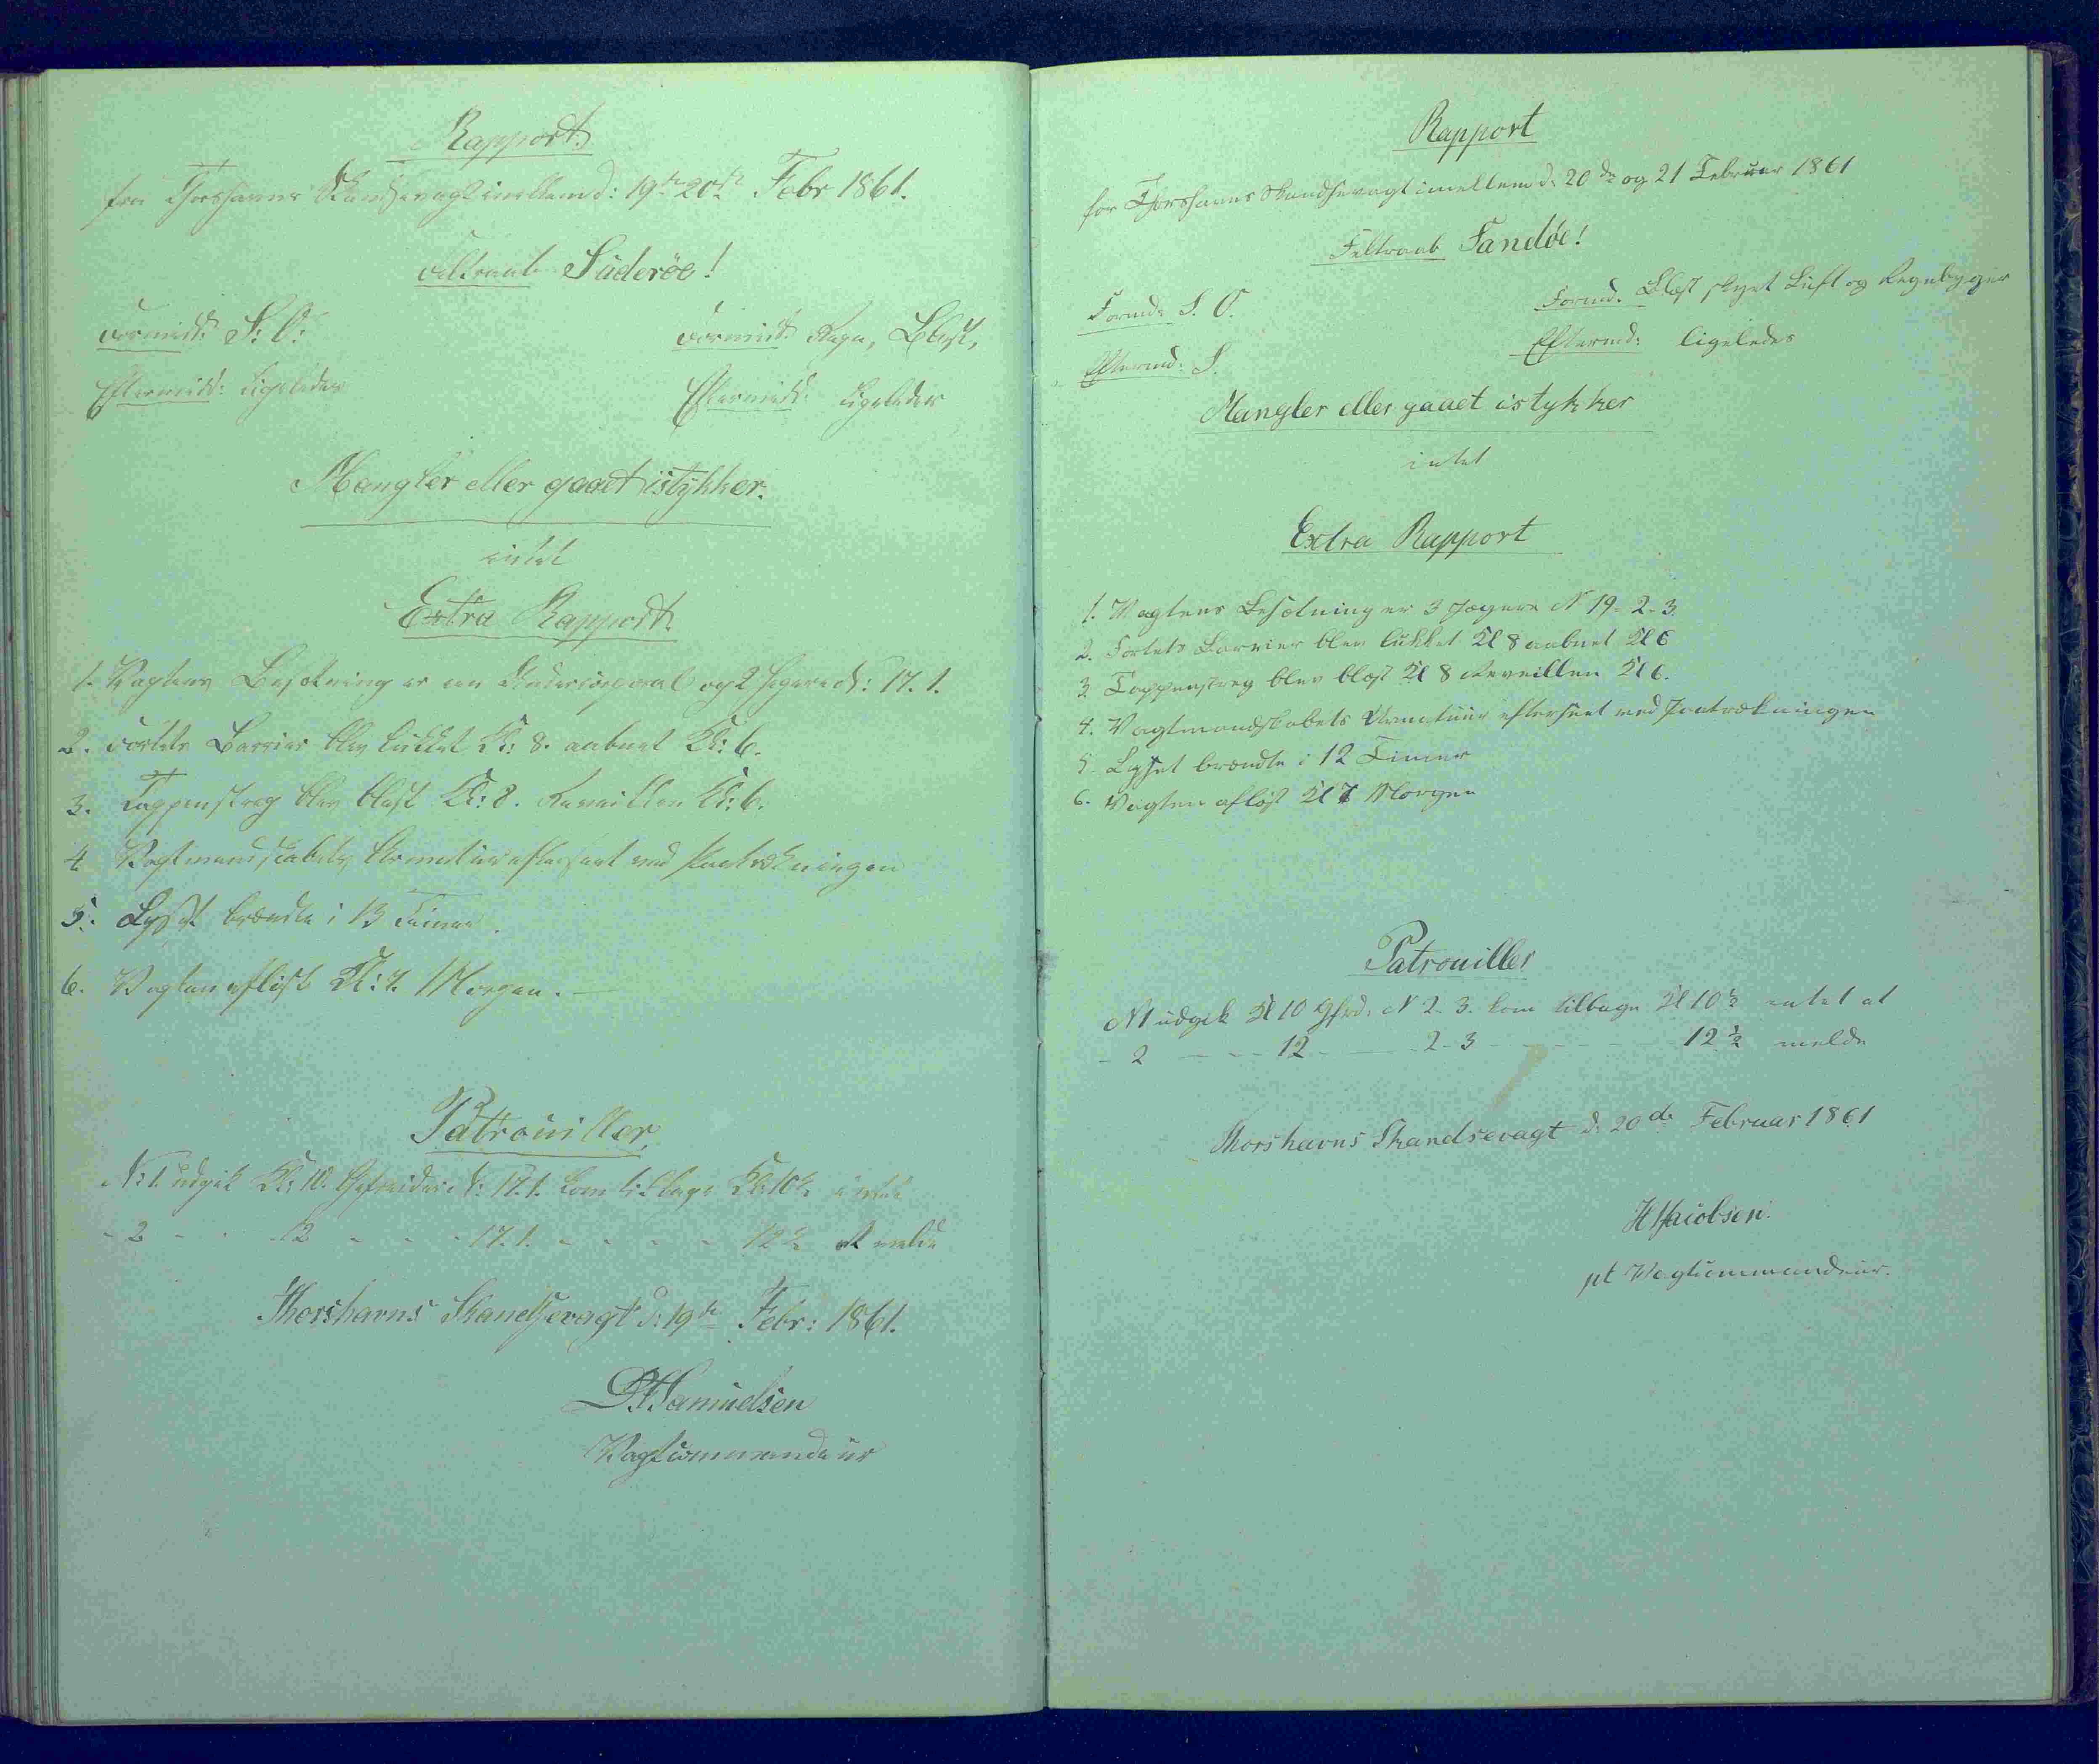 Rapport
fra Thorshavns Skandsevagt imellem d: 19de 20de Febr 1861.
Feltraab Süderöe!
Formidd: S: O:
Formidd: Regn, Blæst,
Eftermidd: Ligeledes
Eftermidd: Ligeledes
Mangler eller gaaet istykker.
intet
Extra Rapport.
1. Vagtens Besætning er en Undercorporal og 2 Jægere N: 17. 1.
2. Fortets Barrier blev lukket Kl: 8. aabnet Kl: 6.
3. Tappenstreg blev blæst Kl: 8. Reveillen Kl: 6.
4 Vagtmandskabets Armatur efterseet ved Paatrækningen
5. Lyset brændte i 13 Timer.
6. Vagten afløst Kl: 7. Morgen.
Patrouiller
N: 1. udgik Kl: 10. Gefreider N: 17. 1. kom tilbage Kl: 10½ intet
- 2 - - 12 - - - 17. 1. - - - - 12½ at melde
Thorshavns Skandsevagt d: 19de Febr: 1861.
Samuelsen
Vagtcommandeur
Rapport
for Thorshavns Skandsevagt imellem d: 20de og 21 Februar 1861
Feltraab Sandöe!
Formd: S. O.
Formd. Blæst skyet Luft og Regnbyger
Eftermd: S.
Eftermd: ligeledes
Mangler eller gaaet istykker
intet
Extra Rapport
1. Vagtens Besætning er 3 Jægere N 19-2-3.
2. Fortets Barrier blev lukket Kl 8 aabnet Kl 6
3 Tappenstreg blev blæst Kl 8 Reveillen Kl 6.
4. Vagtmandskabets Armatuur efterseet ved Paatrækningen
5. Lyset brændte i 12 Timer
6. Vagten afløst Kl 7 Morgen
Patrouiller
N 1 udgik Kl 10 Gfrd. N 2-3. kom tilbage Kl 10½ intet at
- 2 - - - 12 - - 2-3 - - - - - 12½ melde
Thorshavns Skandsevagt d. 20de Februar 1861
H Jacobsen.
pt Vagtcommandeur.